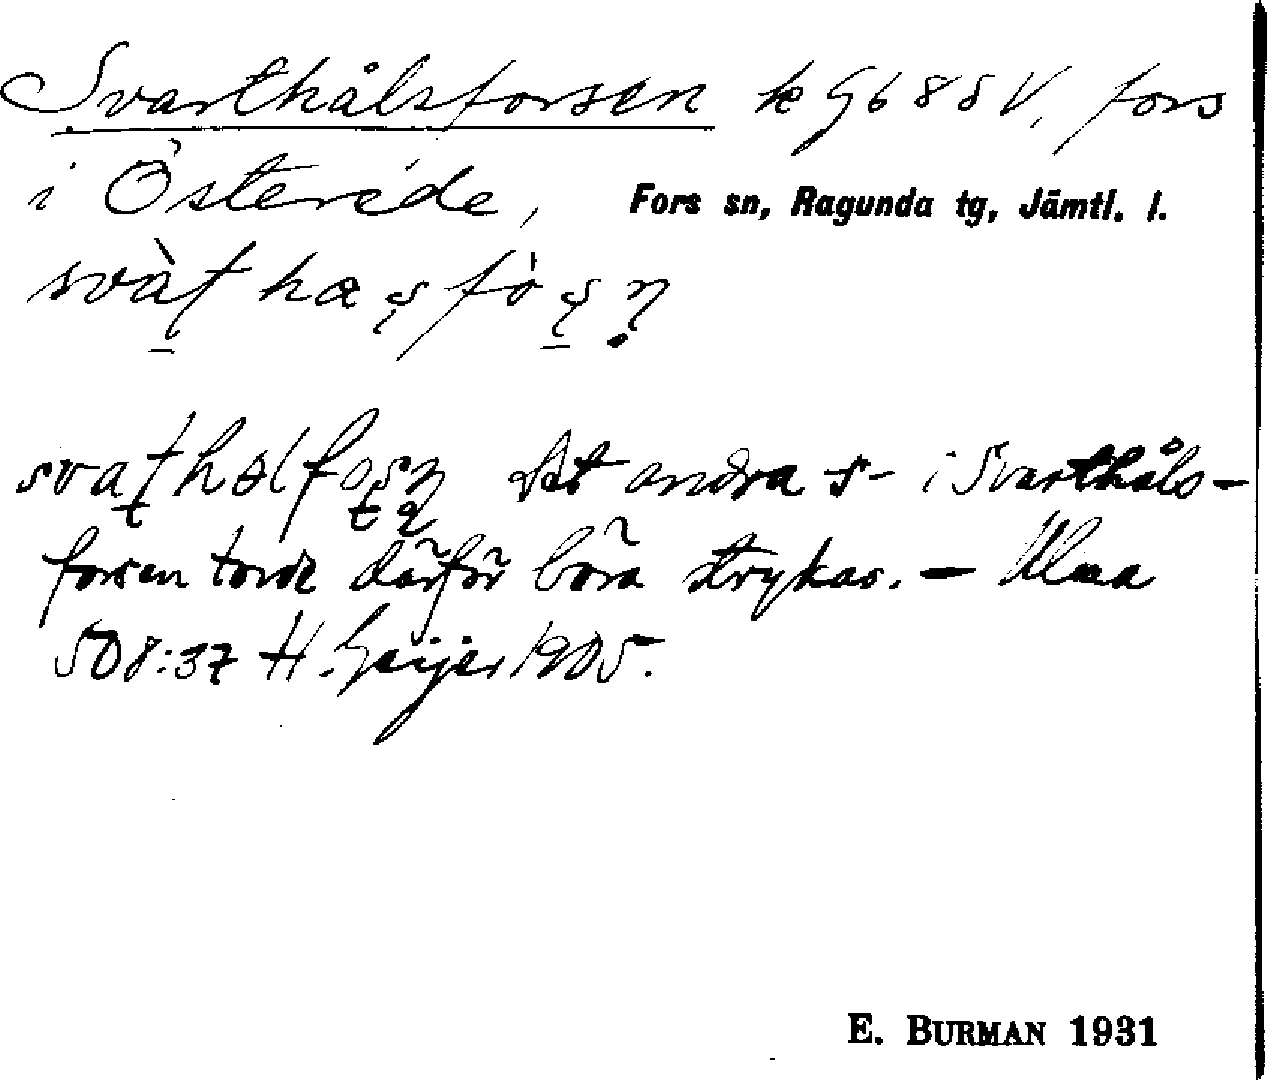 Svarthålsforsen k G6 88 V, fors
i Österede, Fors sn, Ragunda tg, Jämtl. l.
Det andra s- i Svarthåls-
forsen torde därför böra strykas. – Ulma
508:37 H. Geijer 1905.
E. BURMAN 1931